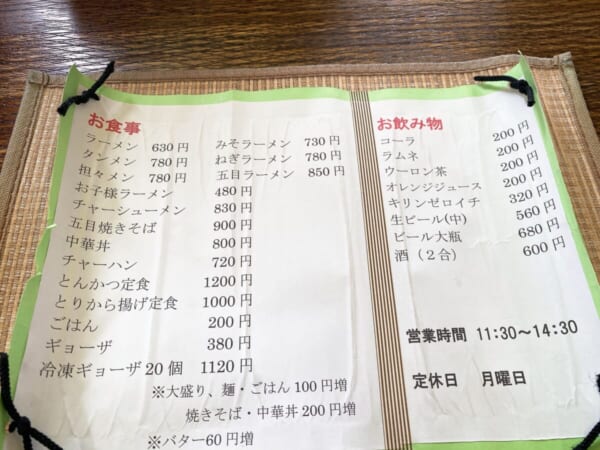 お食事
ラーメン 630円 みそラーメン 730円
タンメン 780円 ねぎラーメン 780円
担々メン 780円 五目ラーメン 850円
お子様ラーメン 480円
チャーシューメン 830円
五目焼きそば 900円
中華丼 800円
チャーハン 720円
とんかつ定食 1200円
とりから揚げ定食 1000円
ごはん 200円
ギョーザ 380円
冷凍ギョーザ20個 1120円
※大盛り、麺・ごはん100円増
焼きそば・中華丼200円増
※バター60円増
お飲み物
コーラ 200円
ラムネ 200円
ウーロン茶 200円
オレンジジュース 200円
キリンゼロイチ 320円
生ビール(中) 560円
ビール大瓶 680円
酒(2合) 600円
営業時間 11:30〜14:30
定休日 月曜日